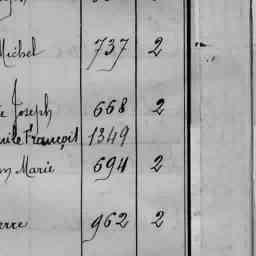 Michel 737 2
Joseph 668 2
François 1349
Marie 694 2
962 2